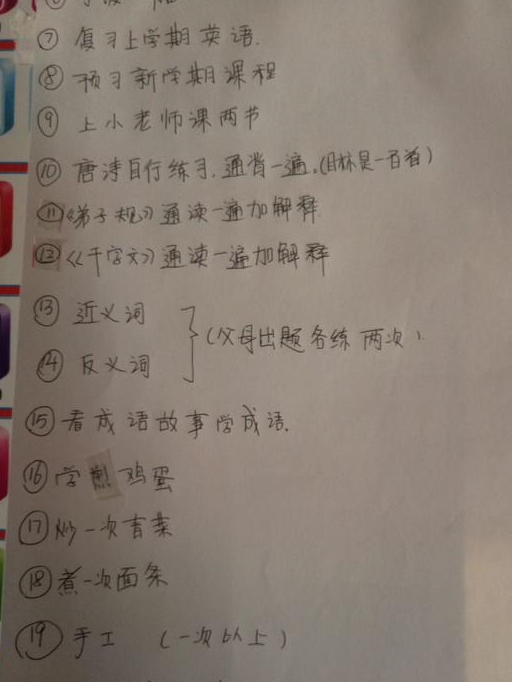 ⑦ 复习上学期英语.
⑧ 预习新学期课程
⑨ 上小老师课两节
⑩ 唐诗自行练习.通背一遍.(目标是一百首)
⑪《弟子规》通读一遍加解释
⑫《千字文》通读一遍加解释
⑬ 近义词
⑭ 反义词
(父母出题各练两次)
⑮ 看成语故事学成语.
⑯ 学煎鸡蛋
⑰ 炒一次青菜
⑱ 煮一次面条
⑲ 手工 (一次以上)